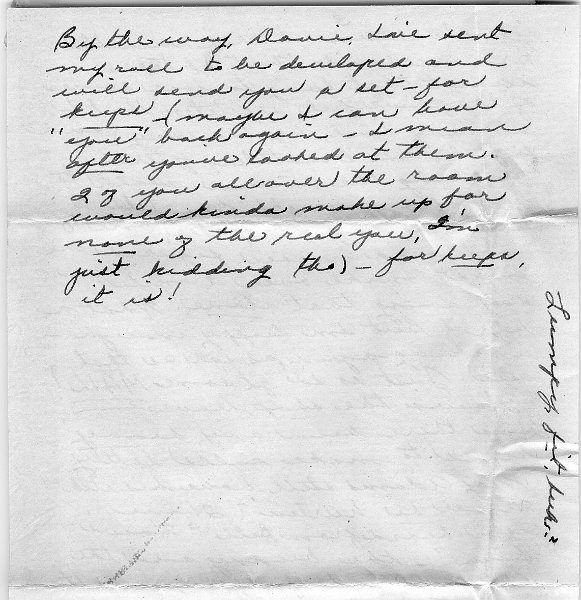 By the way, Davie, I've sent
my roll to be developed and
will send you a set - for
keeps - (maybe I can have
"you" back again - I mean
after you've looked at them.
2 of you all over the room
would kinda make up for
none of the real you, I'm
just kidding tho) - for keeps,
it is!
Lumpy, fit,